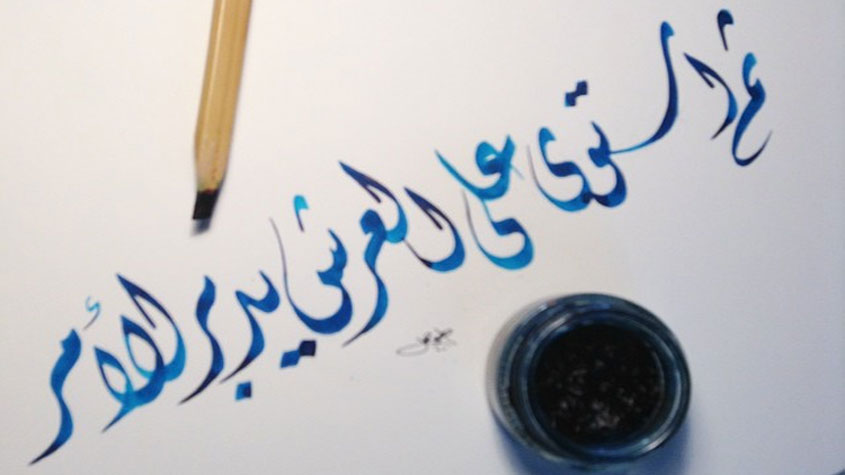 ثم استوى على العرش يدبر الأمر